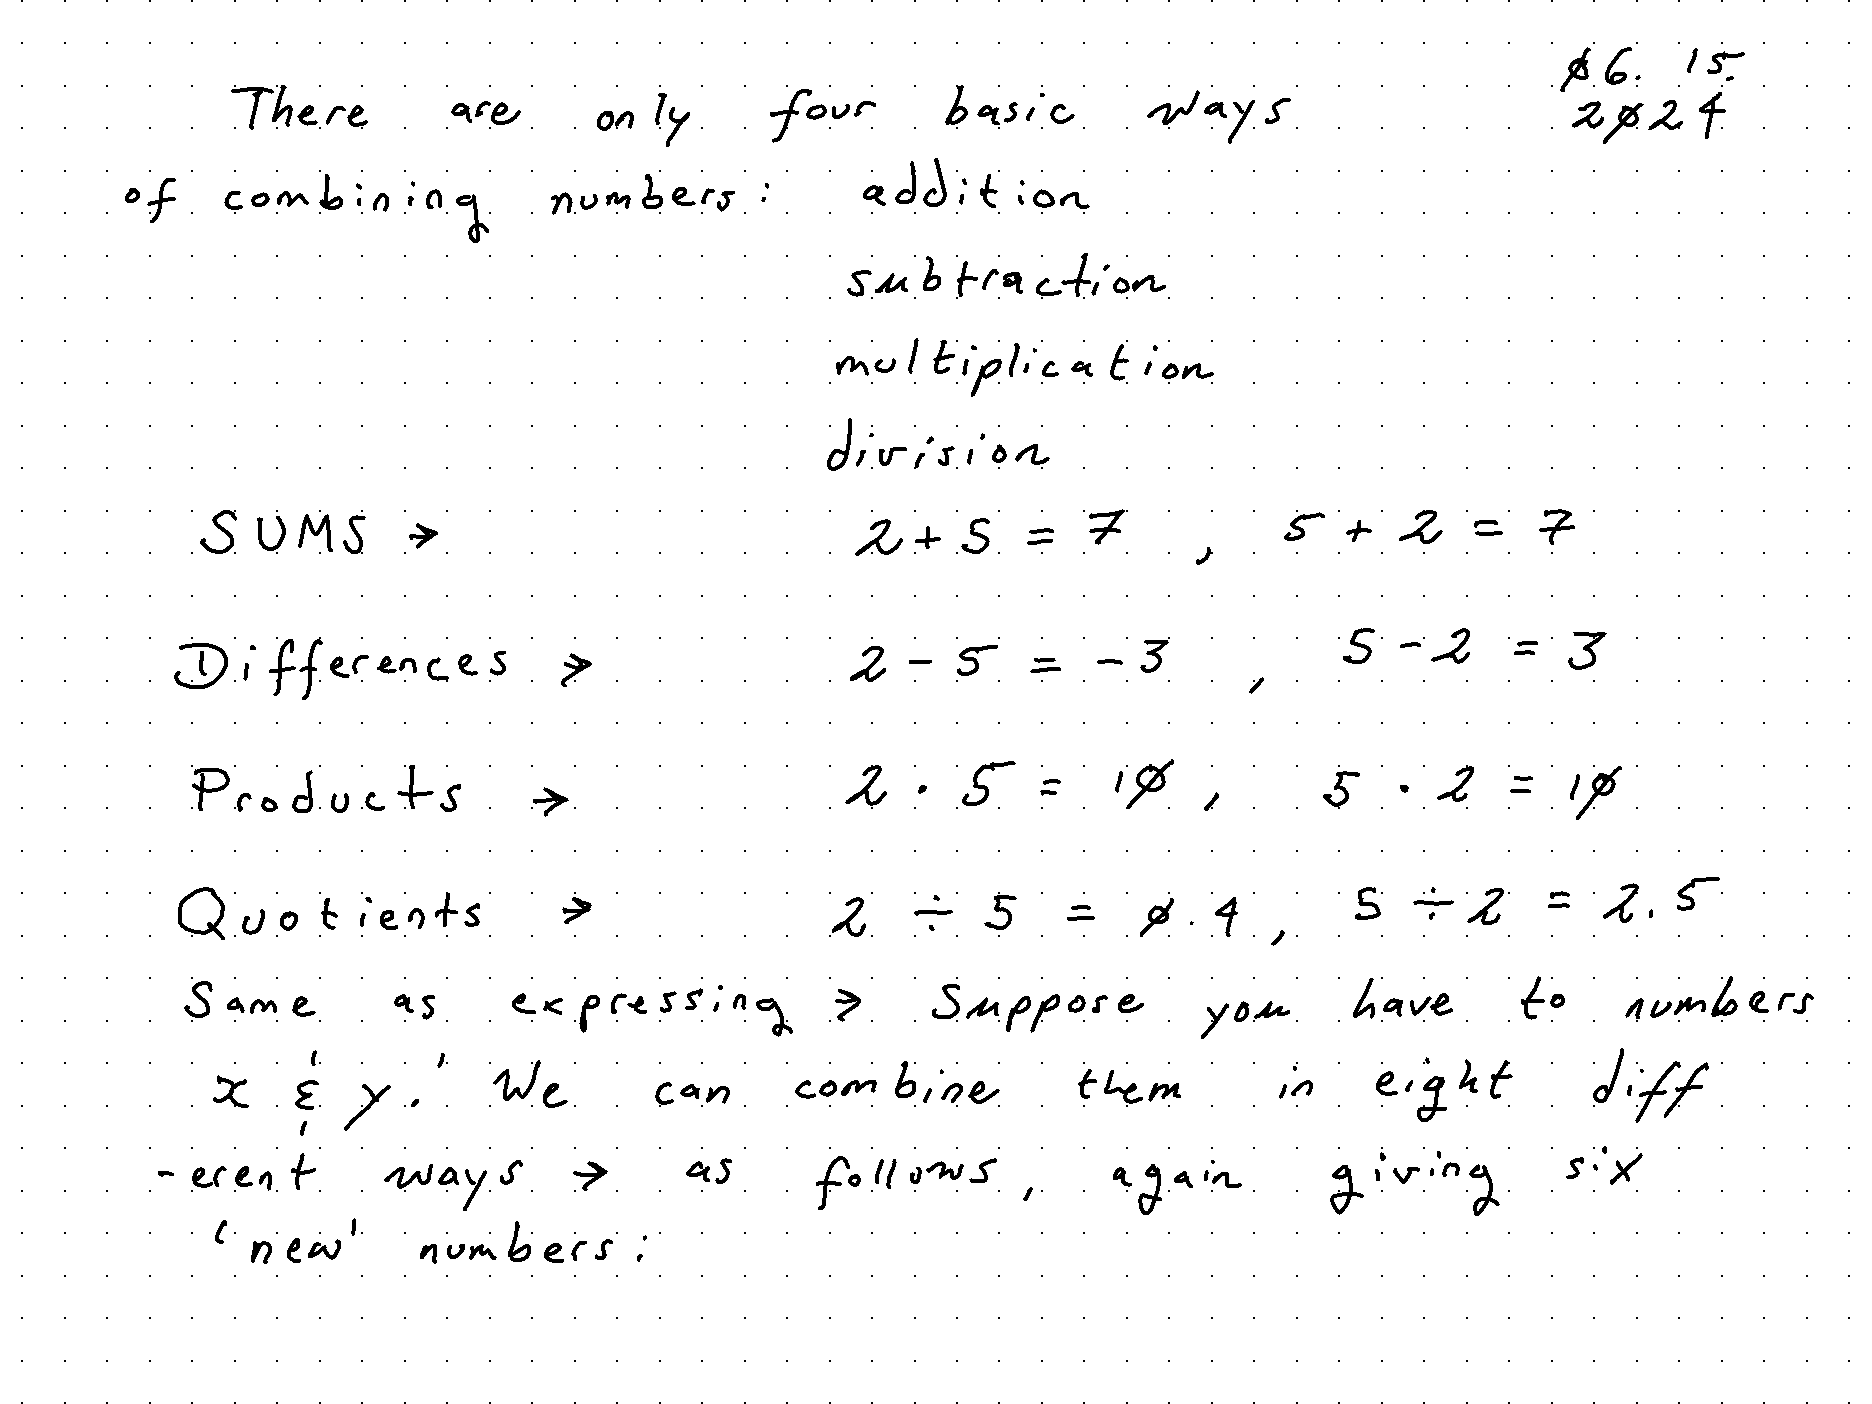 There are only four basic ways
06. 15.
2024
of combining numbers: addition
subtraction
multiplication
division
SUMS → 2 + 5 = 7 , 5 + 2 = 7
Differences → 2 - 5 = -3 , 5 - 2 = 3
Products → 2 · 5 = 10 , 5 · 2 = 10
Quotients → 2 ÷ 5 = 0.4 , 5 ÷ 2 = 2.5
Same as expressing → Suppose you have to numbers
x & y.' We can combine them in eight diff
-erent ways → as follows, again giving six
'new' numbers: